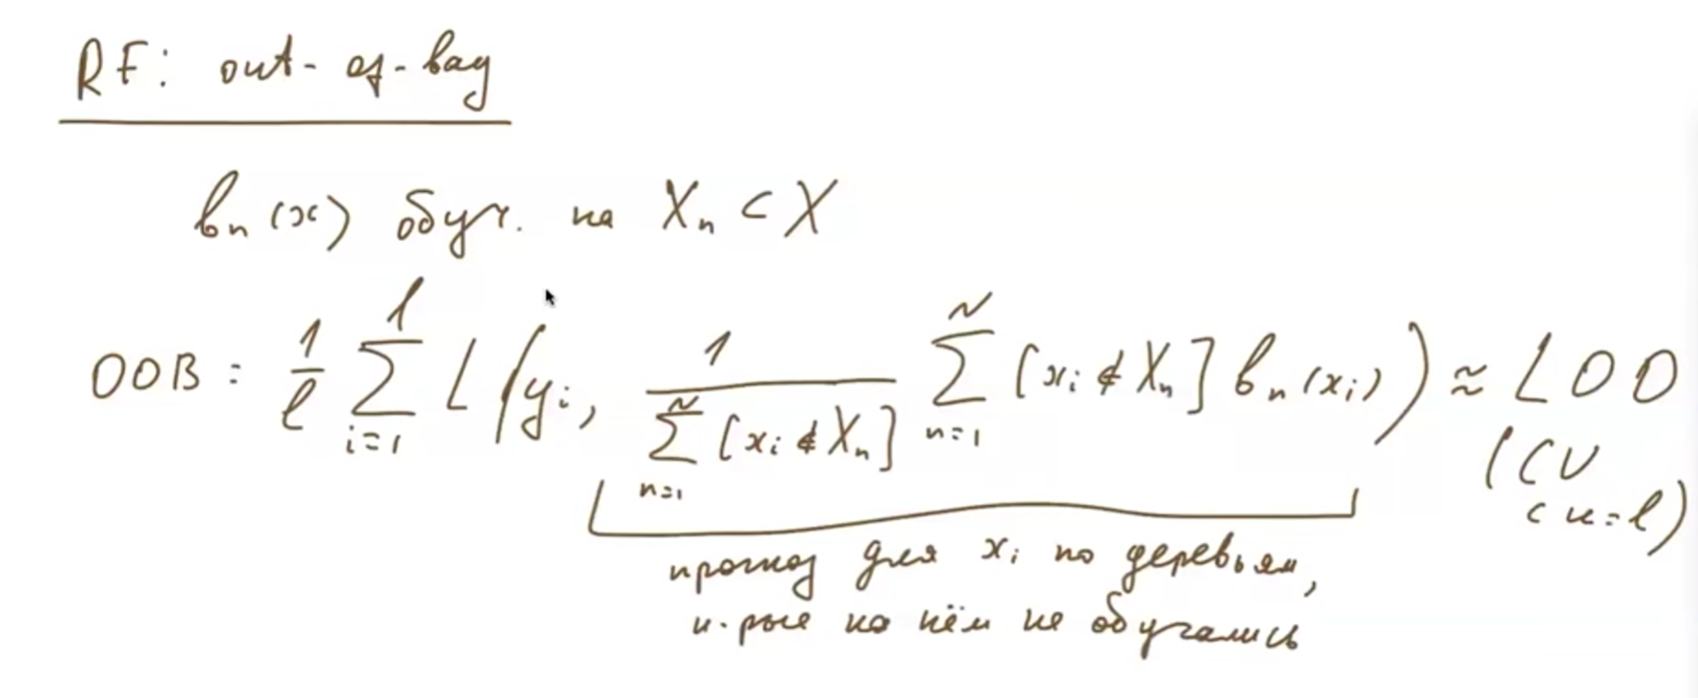 RF: out-of-bag
bₙ(x) обуч. на Xₙ ⊂ X
OOB = 1/ℓ ∑_{i=1}^{ℓ} L(yᵢ, 1/(∑_{n=1}^{N} [xᵢ ∉ Xₙ]) ∑_{n=1}^{N} [xᵢ ∉ Xₙ] bₙ(xᵢ)) ≈ LOO
(CV
с к=ℓ)
прогноз для xᵢ по деревьям,
к-рые на нём не обучались